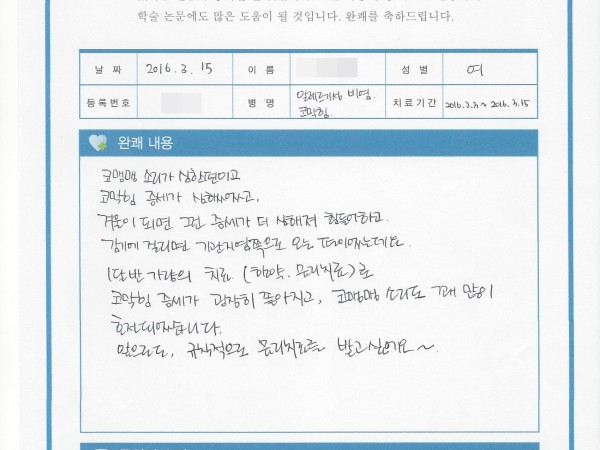 학술 논문에도 많은 도움이 될 것입니다. 완쾌를 축하드립니다.
날 짜 2016. 3. 15 이 름 성 별 여
등록번호 병 명 알레르기성 비염. 코막힘. 치료기간 2016.2.3 ~ 2016.3.15
완쾌 내용
코맹맹 소리가 심한편이고
코막힘 증세가 심했었고,
겨울이 되면 그런 증세가 더 심해져 힘들어하고.
감기에 걸리면 기관지염쪽으로 오는 편이었는데요.
1달 반 가량의 치료 (한약, 물리치료)로
코막힘 증세가 굉장히 좋아지고, 코맹맹 소리도 꽤 많이
호전되었습니다.
앞으로도, 규칙적으로 물리치료를 받고싶어요~.